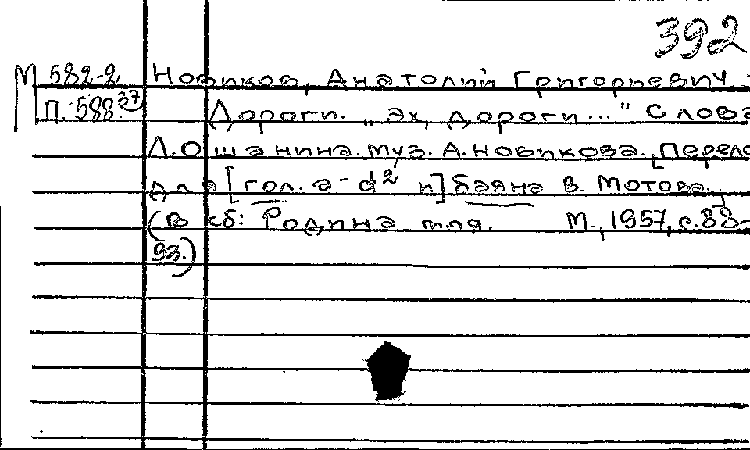 392
М 582-2 Новиков, Анатолий Григорьевич
П. 588.37 Дороги. „Эх, дороги..." Слова
Л. Ошанина. муз. А. Новикова. [Перело
для [гол. a-d² и] баяна В. Мотова.]
(В кб: Родина моя. М., 1957, с. 88-
93.)